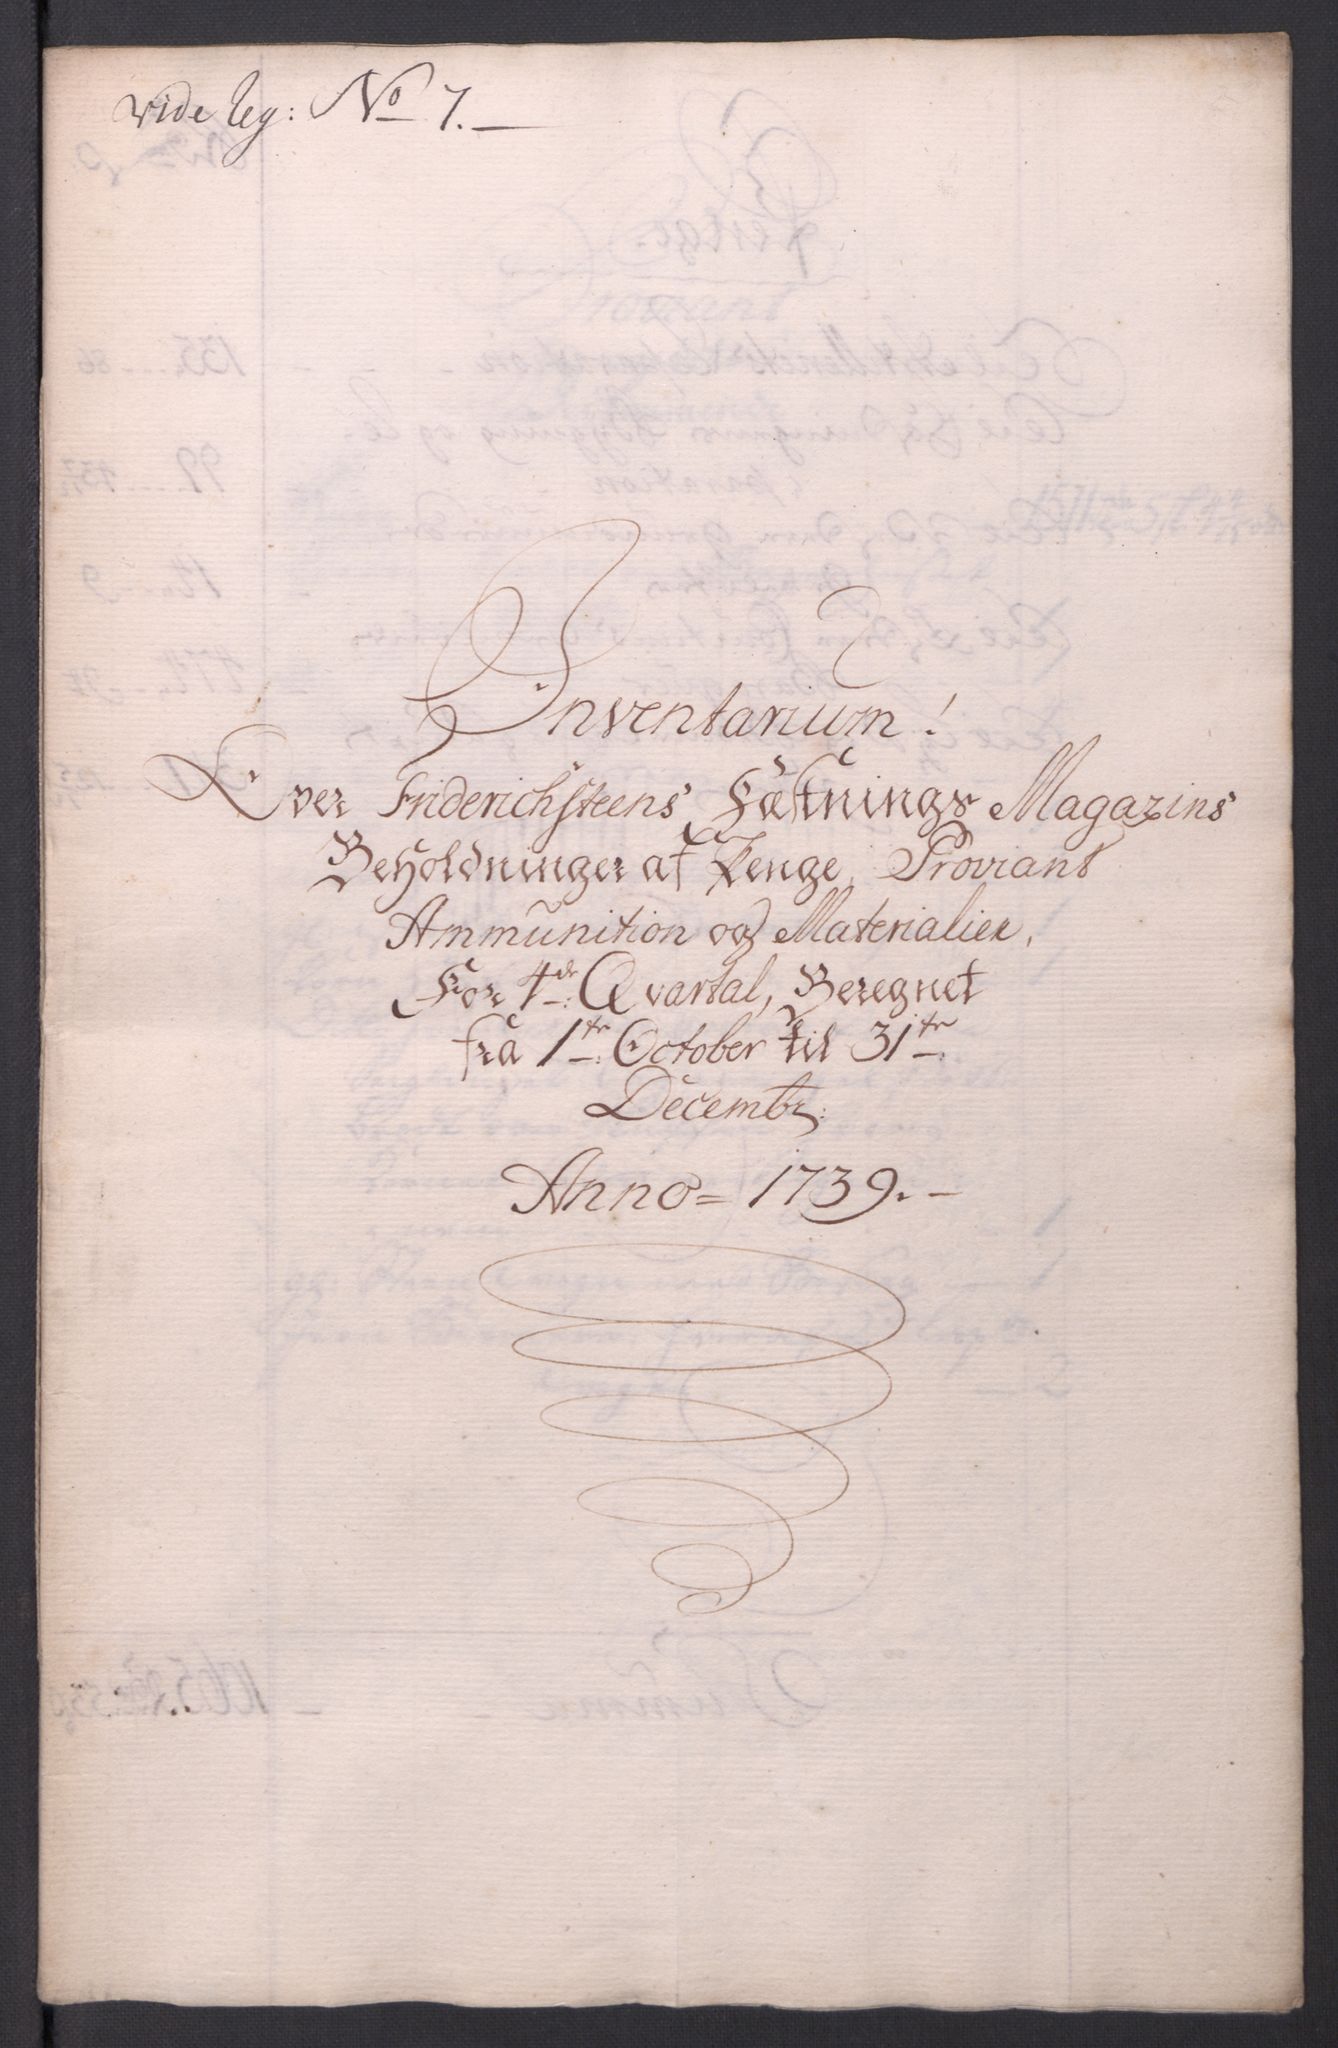 vide leg: No 7.—
Inventarium!
Over Friderichsteens Fæstnings Magazins
Beholdninger af Penge, Proviant
Ammunition og Materialier,
For 4de: Qvartal, Beregnet
fra 1tr: October til 31tr:
Decembr:
Anno = 1739.—